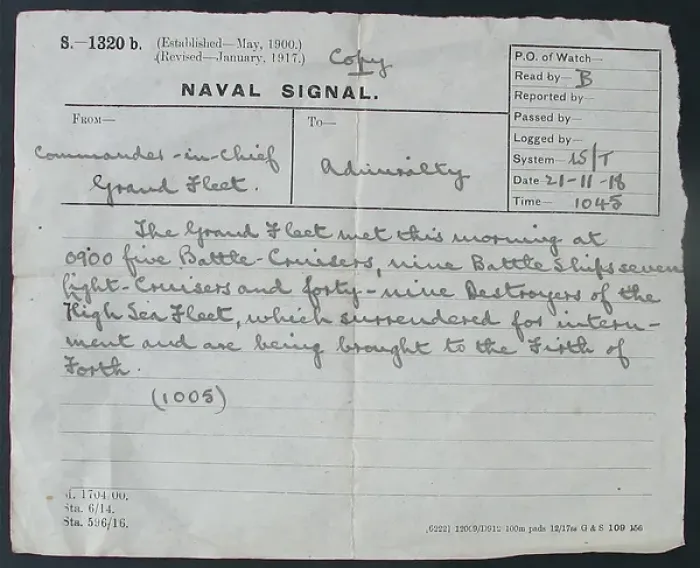 S.—1320 b. (Established—May, 1900.)
(Revised—January, 1917.)
Copy
NAVAL SIGNAL.
P.O. of Watch—
Read by— B
Reported by—
Passed by—
Logged by—
System—
Date 21-11-18
Time— 1045
FROM—
Commander-in-Chief
Grand Fleet.
To—
Admiralty
The Grand Fleet met this morning at
0900 five Battle-Cruisers, nine Battle Ships seven
light-Cruisers and forty-nine Destroyers of the
High Sea Fleet, which surrendered for intern-
ment and are being brought to the Firth of
Forth.
(1005)
1704/00.
Sta. 6/14.
Sta. 596/16.
100m pads 12/17 G & S 109